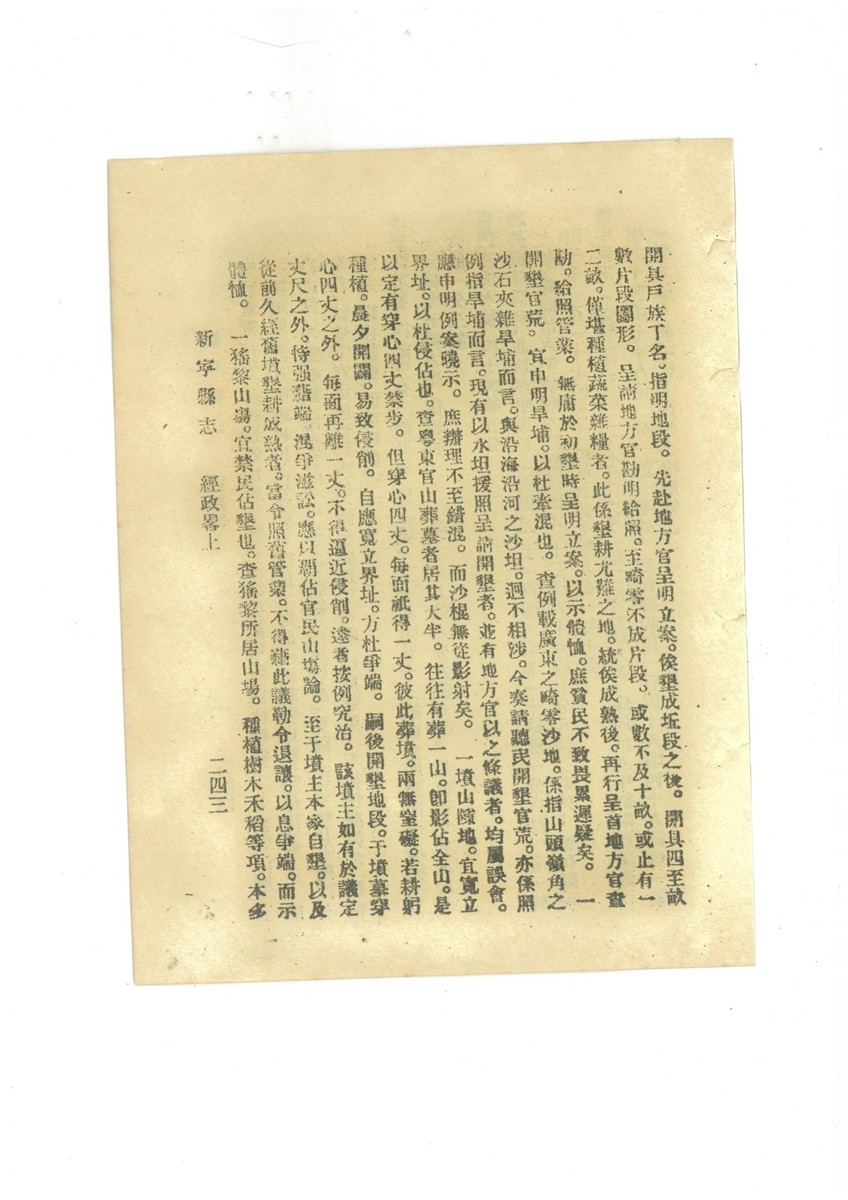 開具戶族丁名。指明地段。先赴地方官呈明立案。俟墾成坵段之後。開具四至畝
數片段圖形。呈請地方官勘明給照。至畸零不成片段。或數不及十畝。或止有一
二畝。僅堪種植蔬菜雜糧者。此係墾耕尤難之地。統俟成熟後。再行呈首地方官查
勘。給照管業。無庸於初墾時呈明立案。以示體恤。庶貧民不致畏累遲疑矣。一
開墾官荒。宜申明旱埔。以杜牽混也。查例載廣東之畸零沙地。係指山頭嶺角之
沙石夾雜旱埔而言。與沿海沿河之沙坦。迥不相涉。今奏請聽民開墾官荒。亦係照
例指旱埔而言。現有以水坦援照呈請開墾者。並有地方官以之條議者。均屬誤會。
應申明例案曉示。庶辦理不至錯混。而沙棍無從影射矣。一墳山隙地。宜寬立
界址。以杜侵佔也。查粵東官山葬墓者居其大半。往往有葬一山。卽影佔全山。是
以定有穿心四丈禁步。但穿心四丈。每面祇得一丈。彼此葬墳。兩無窒礙。若耕躬
種植。晨夕開闢。易致侵削。自應寬立界址。方杜爭端。嗣後開墾地段。于墳墓穿
心四丈之外。每面再離一丈。不得逼近侵削。違者按例究治。該墳主如有於議定
丈尺之外。恃强藉端。混爭滋訟。應以覇佔官民山塲論。至于墳主本家自墾。以及
從前久經舊墳墾耕成熟者。當令照舊管業。不得藉此議勒令退讓。以息爭端。而示
體恤。一猺黎山塲。宜禁民佔墾也。查猺黎所居山塲。種植樹木禾稻等項。本多
新寧縣志 經政畧上 二四三